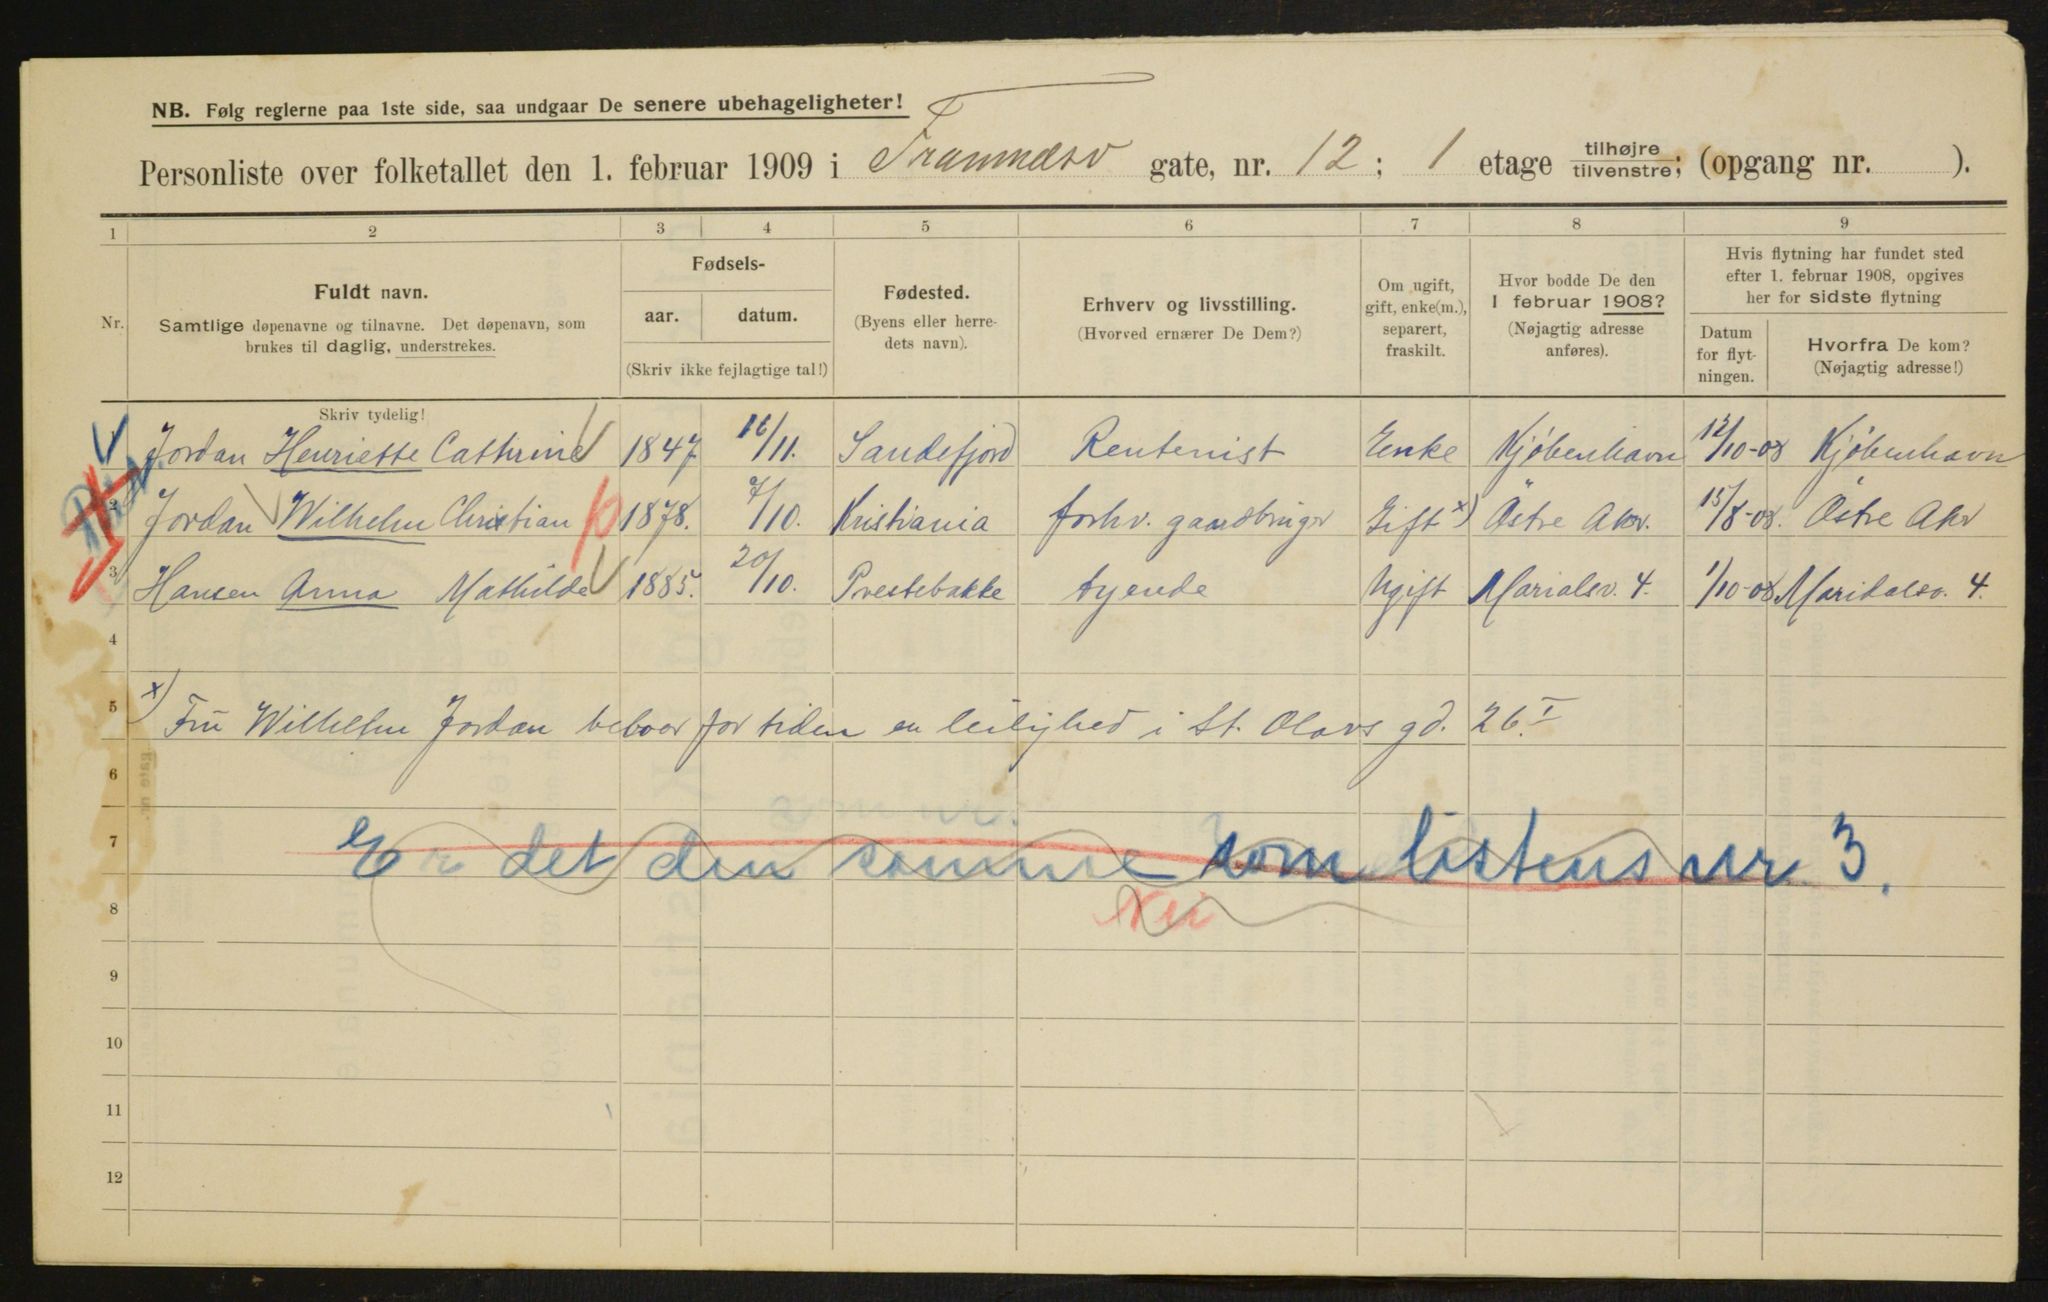 NB. Følg reglerne paa 1ste side, saa undgaar De senere ubehageligheter!
Personliste over folketallet den 1. februar 1909 i Framnæsv gate, nr. 12; 1 etage tilhøjre tilvenstre; (opgang nr. ).
1 2 3 4 5 6 7 8 9
Nr.
Fuldt navn.
Samtlige døpenavne og tilnavne. Det døpenavn, som
brukes til daglig, understrekes.
Skriv tydelig!
Fødsels-
aar. datum.
(Skriv ikke fejlagtige tal!)
Fødested.
(Byens eller herre-
dets navn).
Erhverv og livsstilling.
(Hvorved ernærer De Dem?)
Om ugift,
gift, enke(m.),
separert,
fraskilt.
Hvor bodde De den
1 februar 1908?
(Nøjagtig adresse
anføres).
Hvis flytning har fundet sted
efter 1. februar 1908, opgives
her for sidste flytning
Datum
for flyt-
ningen.
Hvorfra De kom?
(Nøjagtig adresse!)
1 Jordan Henriette Cathrine 1847 16/11. Sandefjord Rentenist Enke Kjøbenhavn 12/10-08 Kjøbenhavn
2 Jordan Wilhelm Christian 1878. 7/10. Kristiania forhv. gaardbruger Gift x) Östre Aker. 15/8-08. Östre Aker
3 Hansen Anna Mathilde 1885. 20/10. Prestebakke tyende Ugift Marialsv. 4. 1/10-08 Maridalsv. 4.
4
5 x) Fru Wilhelm Jordan beboer for tiden en leilighed i St. Olavs gd. 26 I.
6
7 Er det den samme som listens nr 3.
8 Nei
9
10
11
12